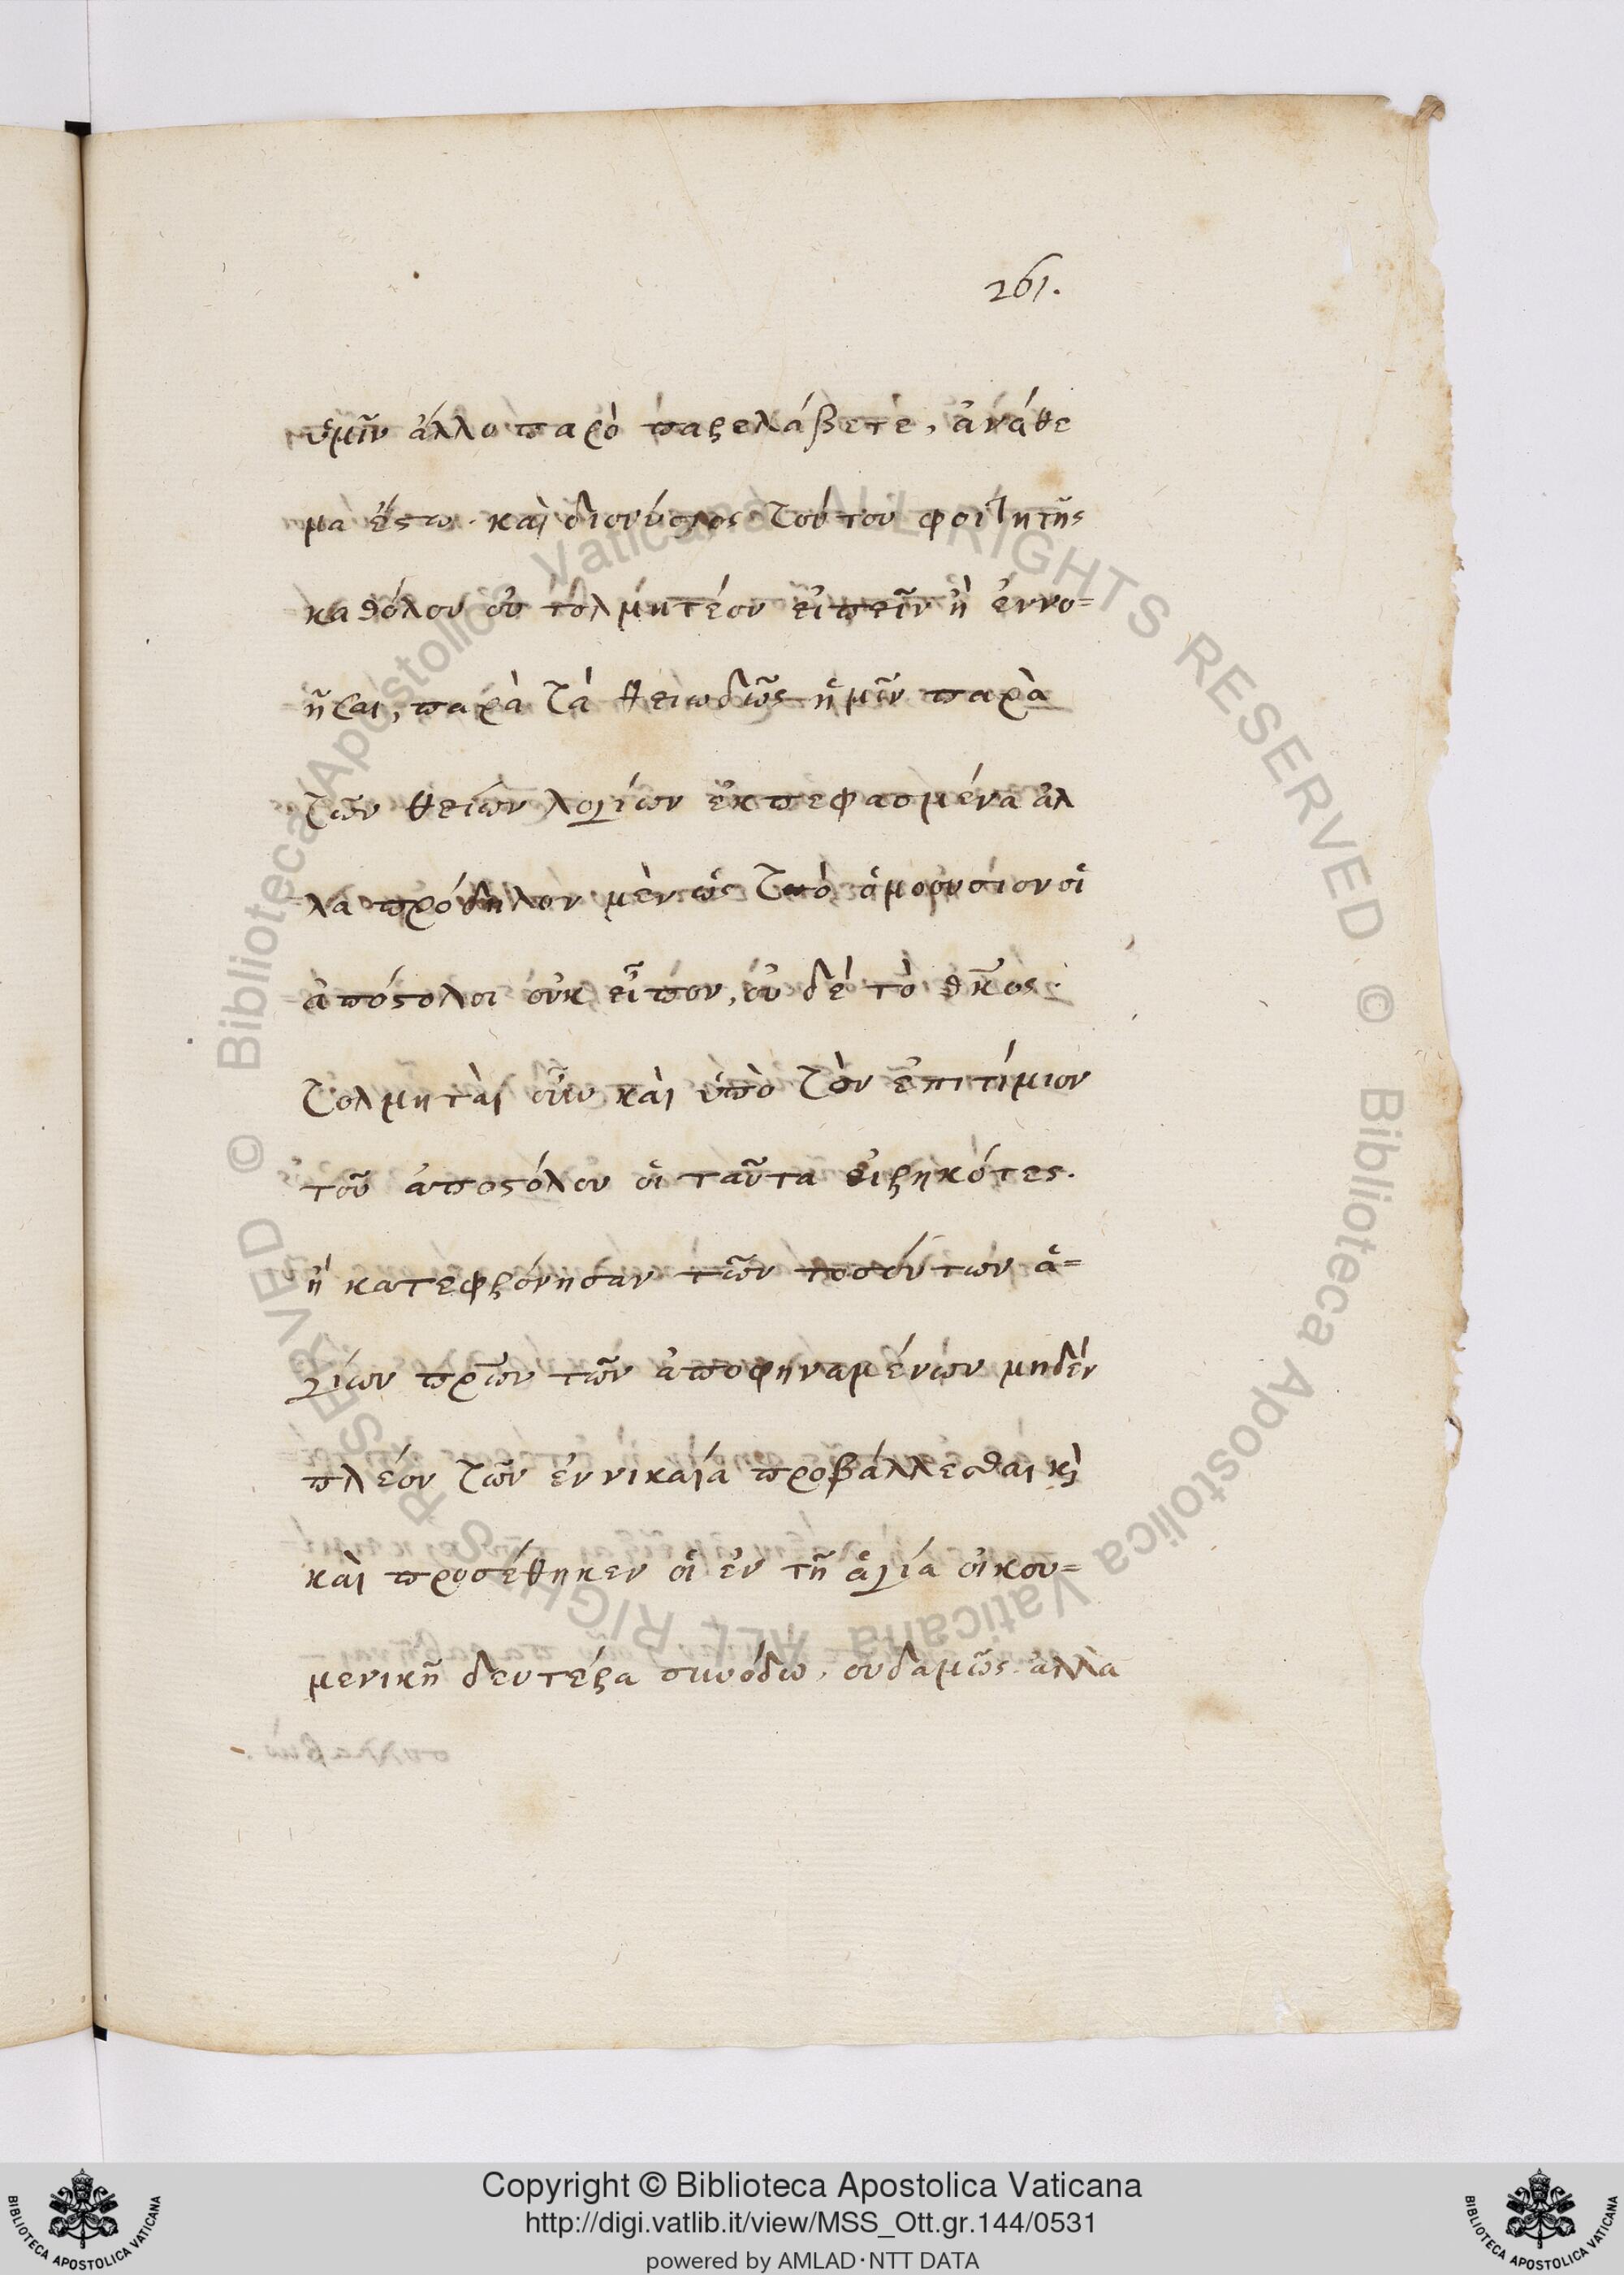 261.
ὑμῖν ἄλλο παρὸ παρελάβετε, ἀνάθε
μα ἔστω. καὶ διονύσιος τούτου φοιτητὴς
καθόλου οὐ τολμητέον εἰπεῖν ἢ ἐννο=
ῆσαι, παρὰ τὰ θειωδῶς ἡμῖν παρὰ
τῶν θείων λογίων ἐκπεφασμένα ἀλ
λα πρόδηλον μὲν ὡς τὸ ὁμοουσίον οἱ
ἀπόστολοι οὐκ εἶπον, οὐ δὲ τὸ θκος.
τολμηταὶ οὖν καὶ ὑπὸ τὸν ἐπιτίμιον
τοῦ ἀποστόλου οἱ ταῦτα εἰρηκότες.
ἢ κατεφρόνησαν τῶν τοσούτων ἁ=
γίων πρων τῶν ἀποφηναμένων μηδὲν
πλέον τῶν ἐν νικαία προβάλλεσθαι κὶ
καὶ προσέθηκεν οἱ ἐν τῆ ἁγία οἰκου=
μενικῆ δευτέρα συνόδω, ουδαμῶς ἀλλὰ
Biblioteca Apostolica Vaticana ALL RIGHTS RESERVED ©
Biblioteca Apostolica Vaticana ALL RIGHTS RESERVED ©
Copyright © Biblioteca Apostolica Vaticana
http://digi.vatlib.it/view/MSS_Ott.gr.144/0531
powered by AMLAD·NTT DATA
BIBLIOTECA APOSTOLICA VATICANA
BIBLIOTECA APOSTOLICA VATICANA